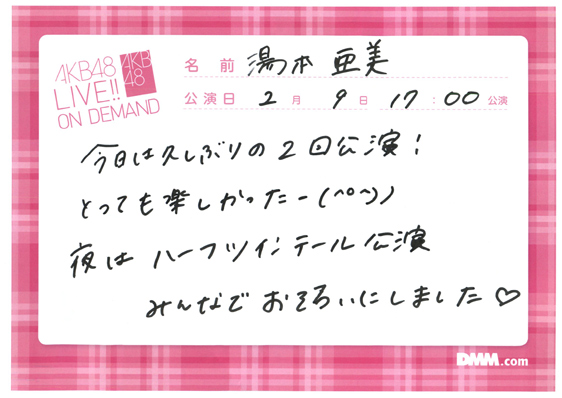 AKB48
LIVE!!
ON DEMAND
AKB
48
名前 湯本 亜美
公演日 2月 9日 17:00 公演
今日は久しぶりの2回公演!
とっても楽しかったー(^o^)/
夜は ハーフツインテール公演
みんなで おそろいにしました♡
DMM.com